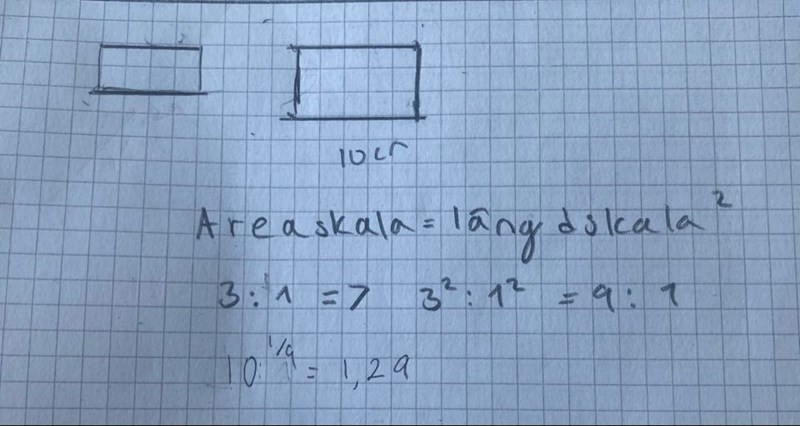 10cm
Areaskala = längdskala²
3:1 => 3²:1² = 9:1
10^1/9 = 1,29